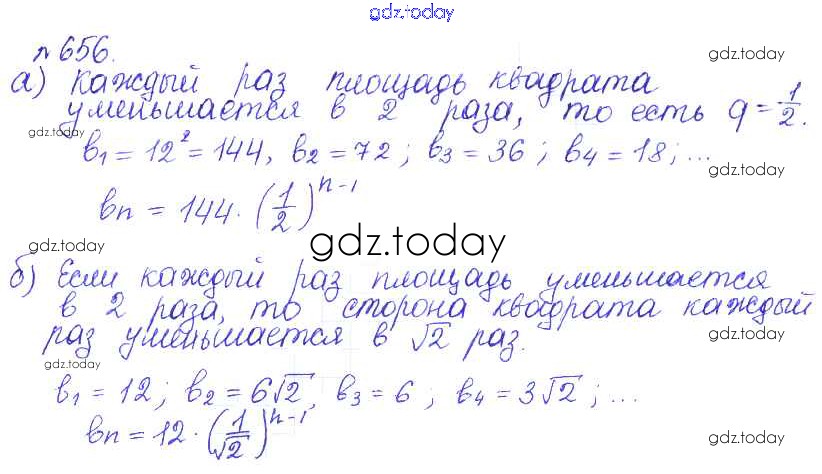 gdz.today
№ 656.
gdz.today
а) Каждый раз площадь квадрата
уменьшается в 2 раза, то есть q = 1/2.
gdz.today
b₁ = 12² = 144, b₂ = 72; b₃ = 36; b₄ = 18; ...
gdz.today
bn = 144 · (1/2)ⁿ⁻¹
gdz.today
gdz.today
б) Если каждый раз площадь уменьшается
в 2 раза, то сторона квадрата каждый
раз уменьшается в √2 раз.
gdz.today
gdz.today
b₁ = 12; b₂ = 6√2, b₃ = 6; b₄ = 3√2; ...
bn = 12 · (1/√2)ⁿ⁻¹
gdz.today
gdz.today